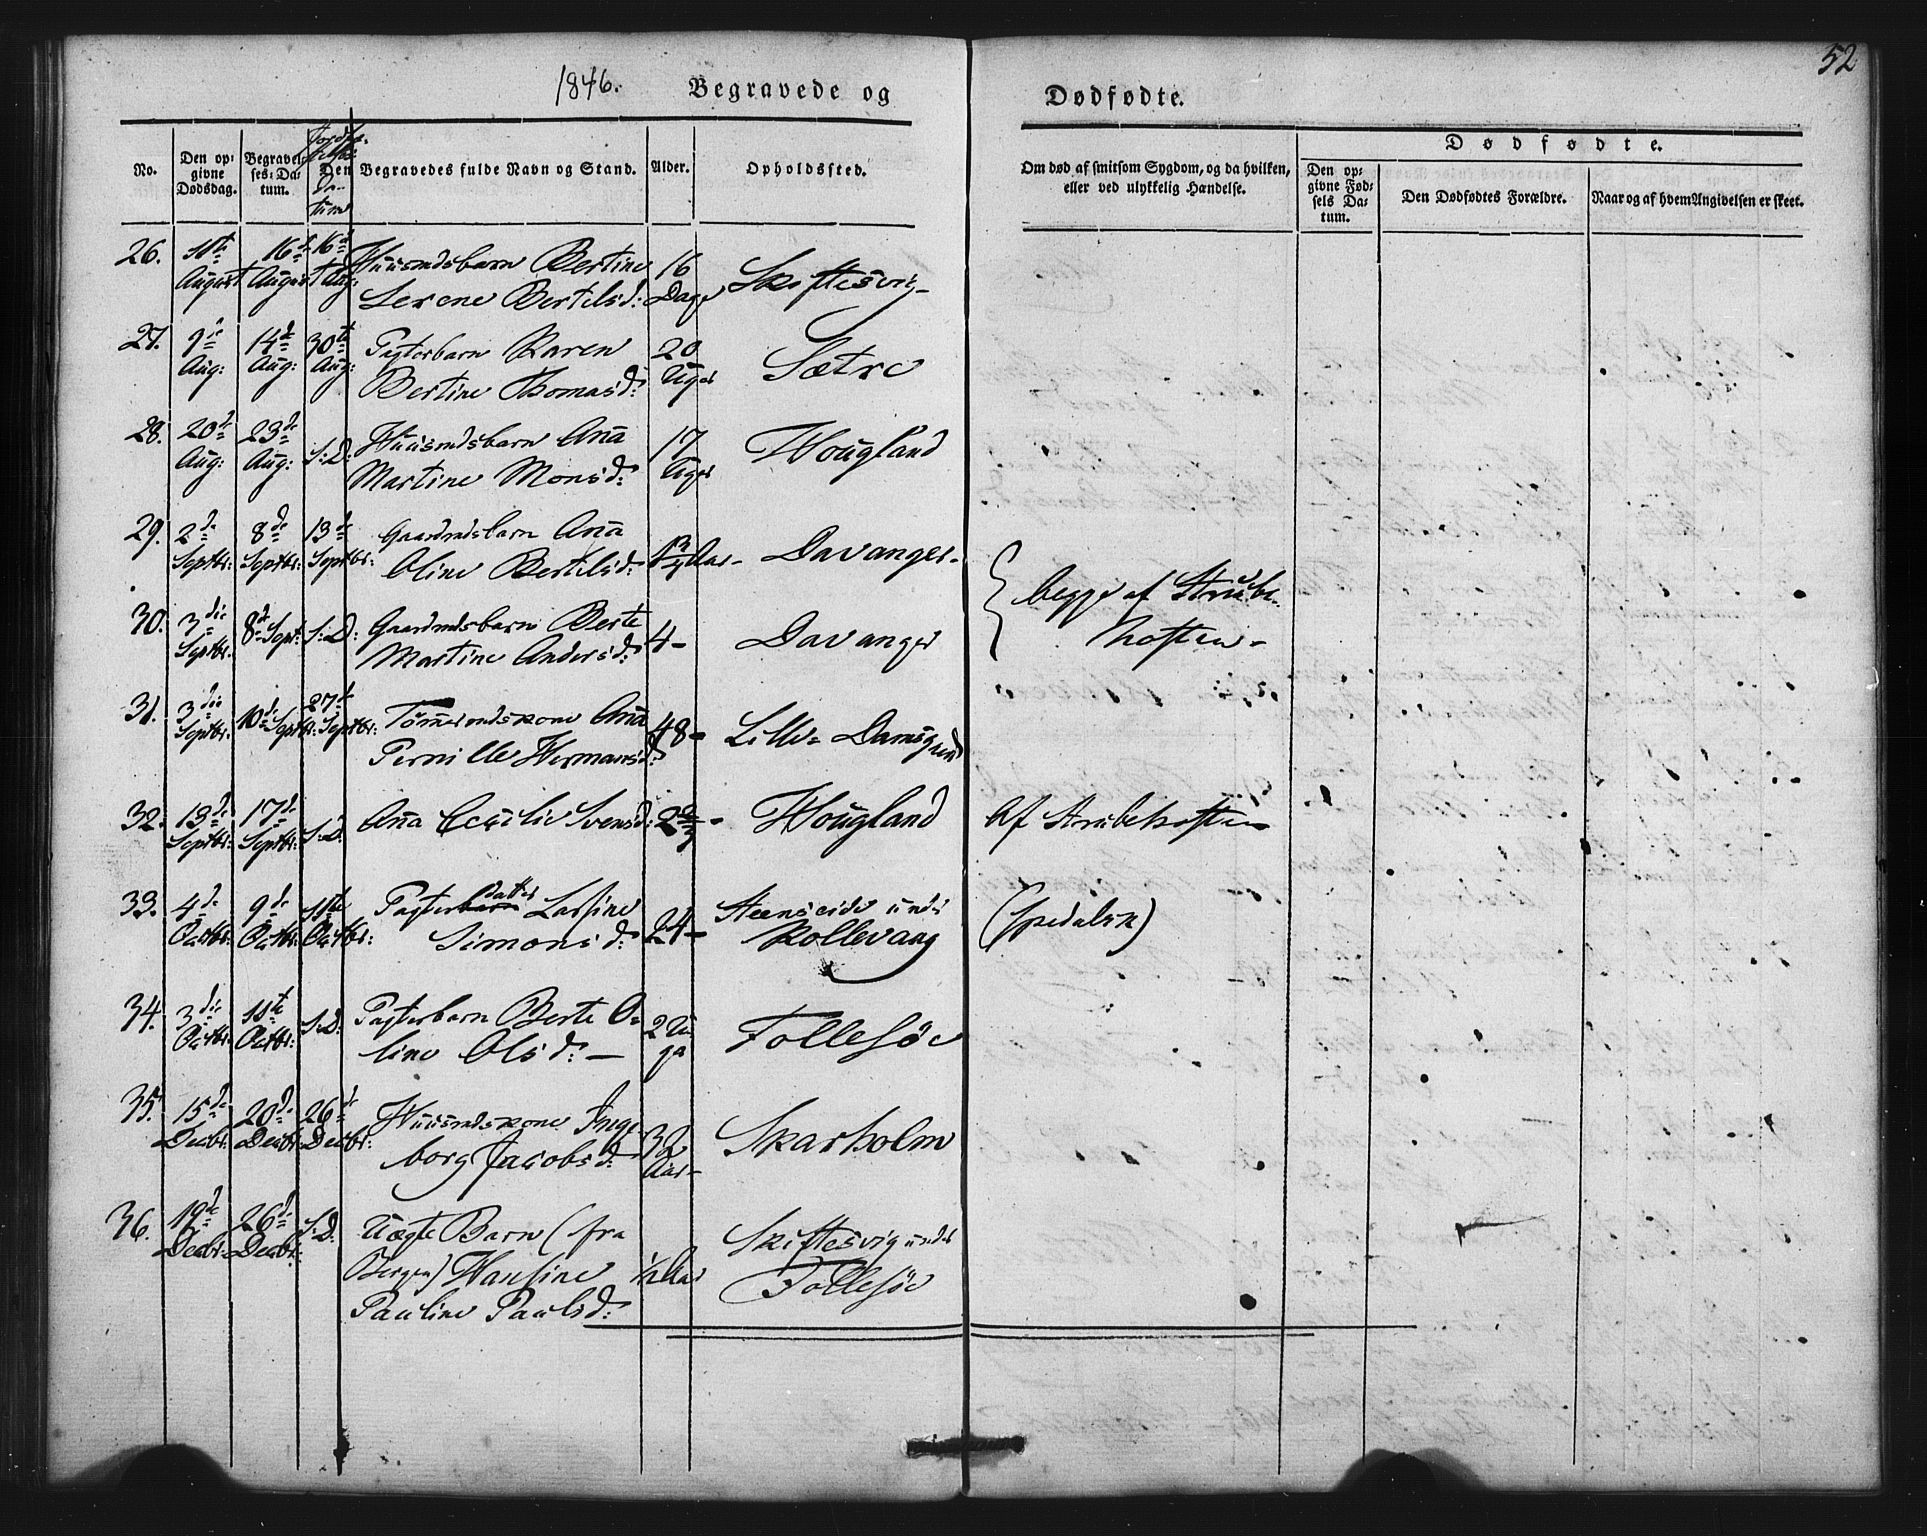 52
1846. Begravede og Dødfødte.
No. Den opgivne Dødsdag. Begravelses-Datum. Jordfæstelses Datum Begravedes fulde Navn og Stand. Alder. Opholdssted. Om død af smitsom Sygdom, og da hvilken, eller ved ulykkelig Hændelse. Dødfødte.
Den opgivne Fødsels Datum. Den Dødfødtes Forældre. Naar og af hvem Angivelsen er skeet.
26. 11te August 16de August 16de Aug: Huusmdsbarn Bertine
Serene Bertilsd: 16 Dage Skiftesvig
27. 9de Aug: 14de Aug: 30te Aug: Pagterbarn Karen
Bertine Thomasd: 20 Uger Sætre
28. 20de Aug: 23de Aug: S:D: Huusmdsbarn Ana
Martine Monsd: 17 Uger Hougland
29. 2de Septbr: 8de Septbr: 13de Septbr: Gaardmdsbarn Ana
Oline Bertilsd: Aar Davanger
30. 3die Septbr. 8de Sept: S:D: Gaardmdsbarn Berte
Martine Andersd: 4 - Davanger
begge af Strube
hosten
31. 3die Septbr: 10de Septbr: 27de Septbr: Tømermdskone Ana
Pernille Hermansd: 48 - Lille Damsgaard
32. 13de Septbr: 17de Septbr: S:D: Ana Cecilie Svensd: Hougland Af Strubehosten
33. 4de Octbr: 9de Octbr: 11te Octbr: Pagterdatter Lassine
Simonsd: 24 - Steenseide under
Kollevaag (spedalsk)
34. 3die Octbr: 11te Octbr: S:D: Pagterbarn Berte O-
line Olsd: 2 Uger Follesøe
35. 15de Decbr: 20de Decbr: 26de Decbr: Huusmdskone Inge-
borg Jacobsd: 32 Aar Skarholm
36. 19de Decbr: 26de Decbr: S:D: Uægte Barn (fra
Bergen) Hansine
Pauline Paulsd: ½ Aar Skiftesvig under
Follesøe